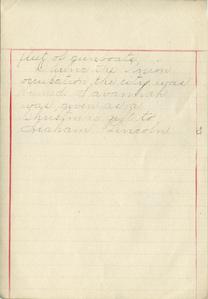 fleet of gunboats.
During the Union
occupation the city was
burned. Savannah
was given as a
Christmas gift to
Abraham Lincoln